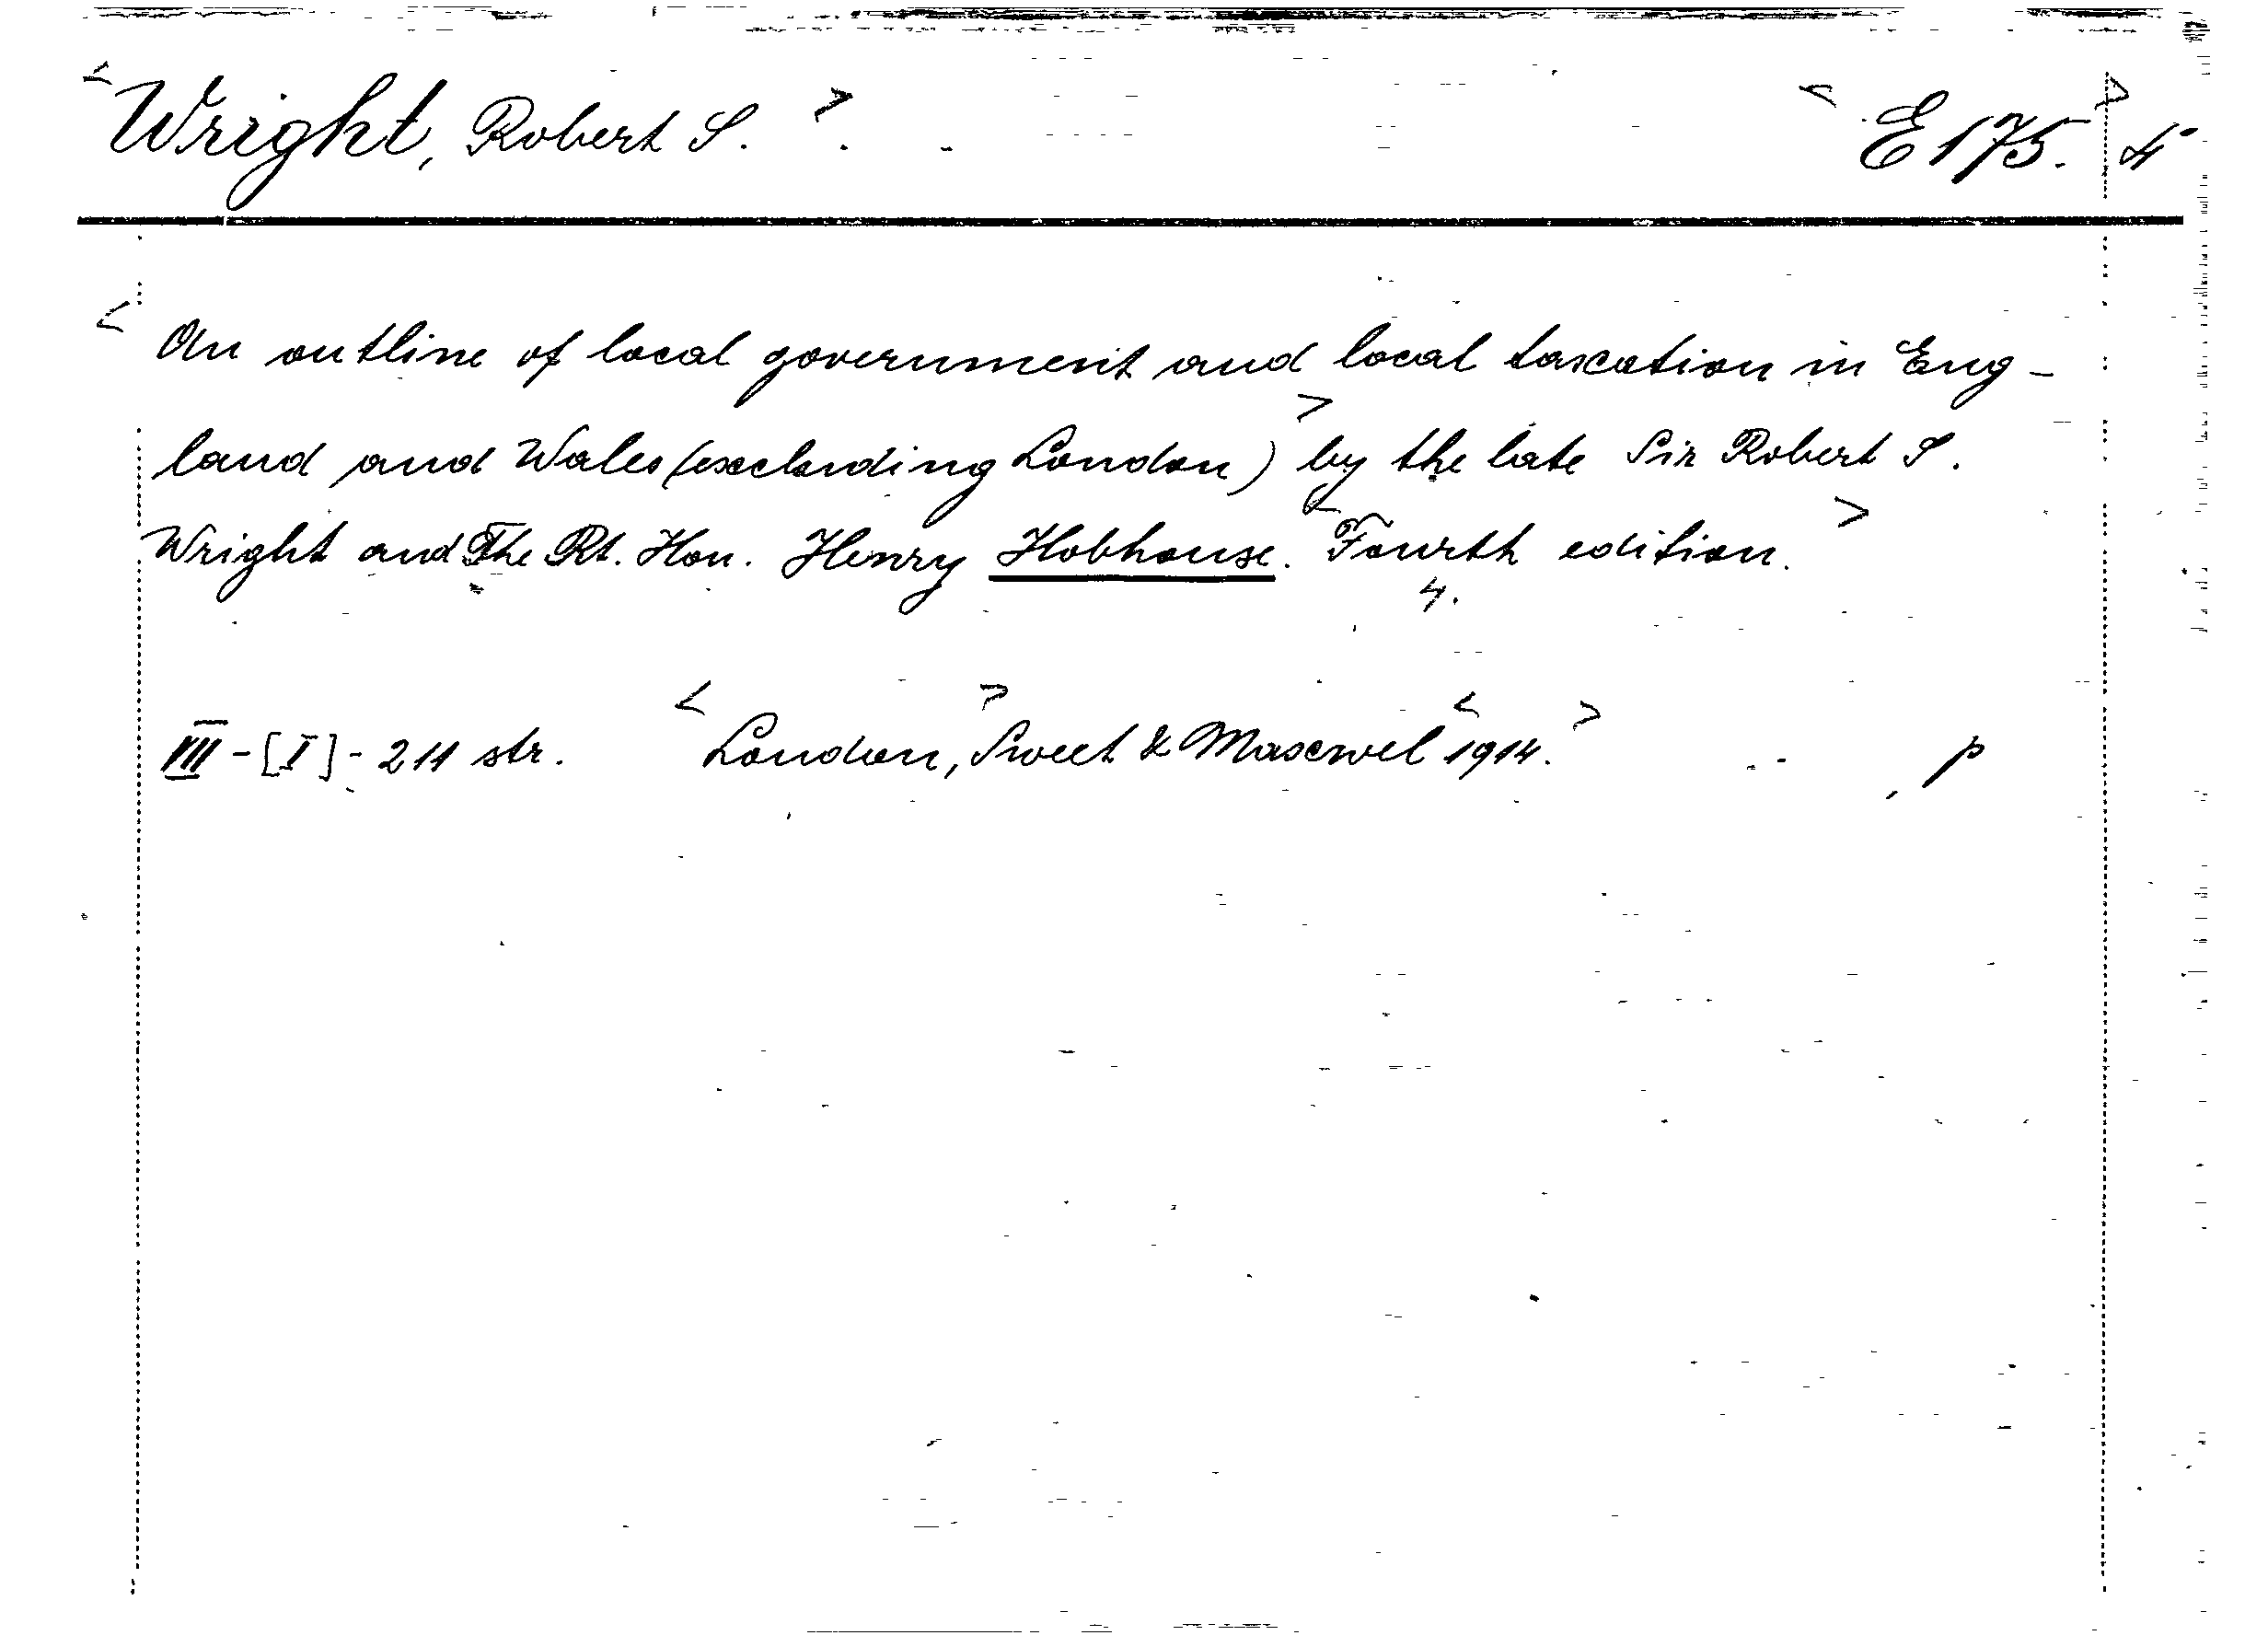 <Wright, Robert S.> <E 175.> 4°
<An outline of local government and local taxation in Eng-
land and Wales (excluding London)> by the late Sir Robert S.
Wright and The Rt. Hon. Henry Hobhouse. <Fourth edition.>
4.
VIII-[I]-211 str. <London,> Sweet & Maxwel <1914.> p